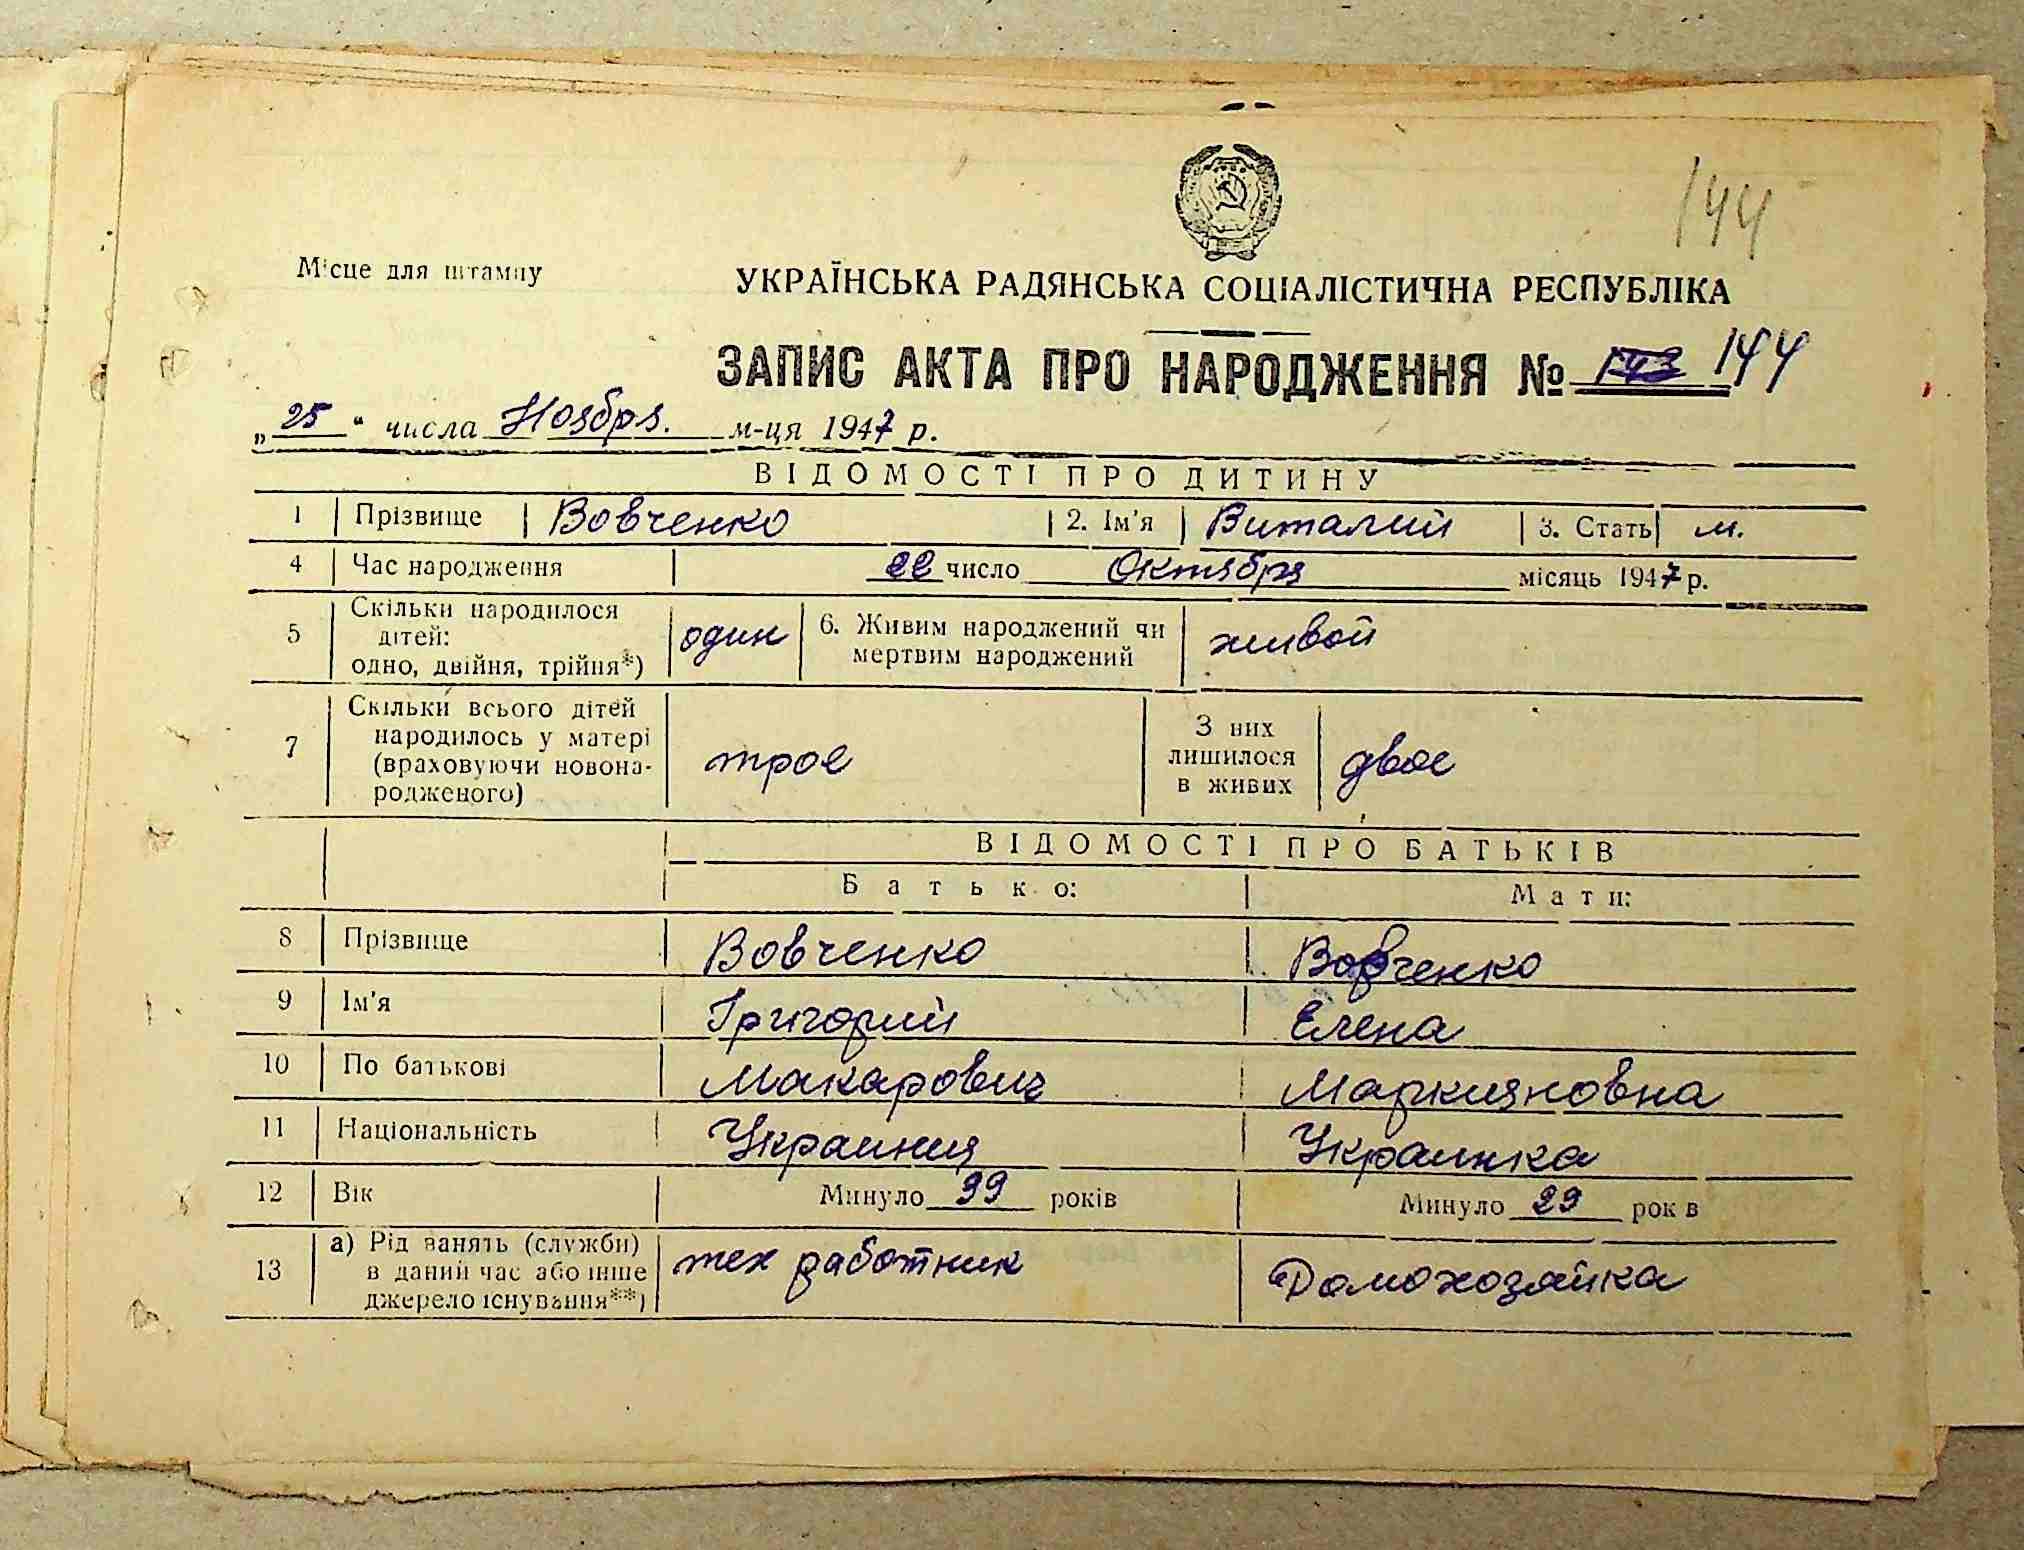 144
Місце для штампу
УКРАЇНСЬКА РАДЯНСЬКА СОЦІАЛІСТИЧНА РЕСПУБЛІКА
ЗАПИС АКТА ПРО НАРОДЖЕННЯ № 143 144
„25“ числа Ноября. м-ця 1947 р.
ВІДОМОСТІ ПРО ДИТИНУ
1 Прізвище Вовченко 2. Ім'я Виталий 3. Стать м.
4 Час народження 22 число Октября місяць 1947 р.
5 Скільки народилося дітей: одно, двійня, трійня*) один 6. Живим народжений чи мертвим народжений живой
7 Скільки всього дітей народилось у матері (враховуючи новона-родженого) трое З них лишилося в живих двое
ВІДОМОСТІ ПРО БАТЬКІВ
Батько: Мати:
8 Прізвище Вовченко Вовченко
9 Ім'я Григорий Елена
10 По батькові Макарович Маркияновна
11 Національність Украинец Украинка
12 Вік Минуло 39 років Минуло 29 рок в
13 а) Рід занять (служби) в даний час або інше джерело існування**) тех работник Домохозяйка